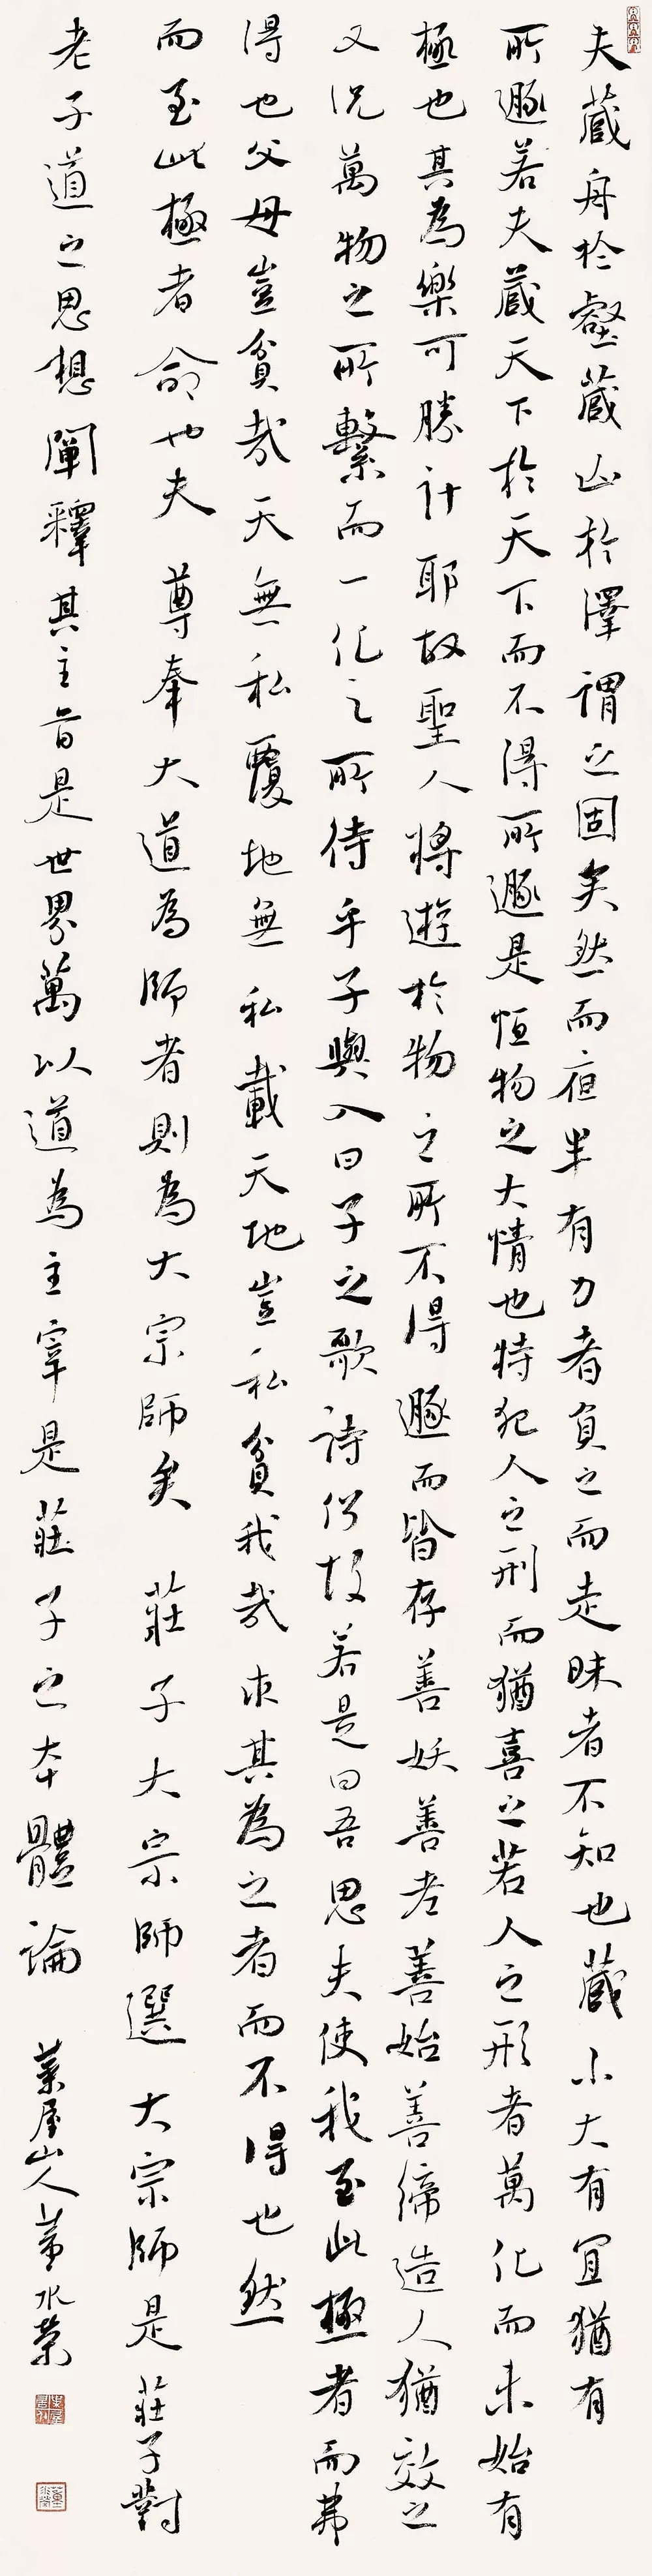 夫藏舟於壑藏山於澤謂之固矣然而夜半有力者負之而走昧者不知也藏小大有宜猶有
所遯若夫藏天下於天下而不得所遯是恆物之大情也特犯人之刑而猶喜之若人之形者萬化而未始有
極也其為樂可勝計耶故聖人將遊於物之所不得遯而皆存善妖善老善始善締造人猶效之
又況萬物之所繫而一化之所待乎子輿入曰子之歌詩何故若是曰吾思夫使我至此極者而弗
得也父母豈貧哉天無私覆地無私載天地豈私貧我哉求其為之者而不得也然
而至此極者命也夫 尊奉大道為師者則為大宗師矣 莊子大宗師選 大宗師是莊子對
老子道之思想闡釋其主旨是世界萬以道為主宰是莊子之本體論 葉屋山人黃水榮